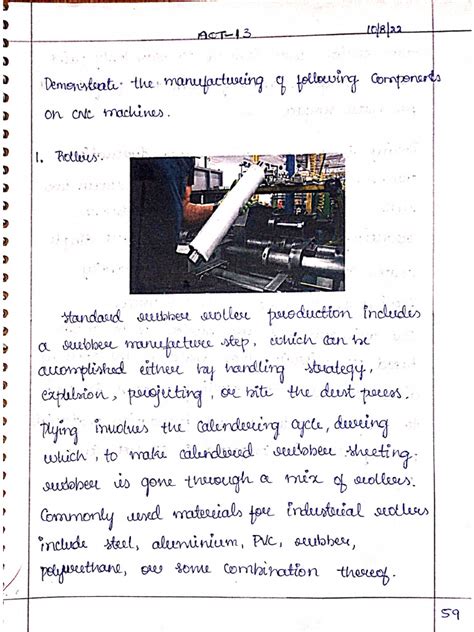 ACT-13
10/8/22
Demonstrate the manufacturing of following Components
on CNC machines.
1. Rollers.
Standard rubber roller production includes
a rubber manufacture step, which can be
accomplished either by handling strategy,
expulsion, projecting, or bite the dust press.
Plying involves the calendering cycle, during
which, to make calendered rubber sheeting.
rubber is gone through a mix of rollers.
Commonly used materials for industrial rollers
include steel, aluminium, PVC, rubber,
polyurethane, or some combination thereof.
59